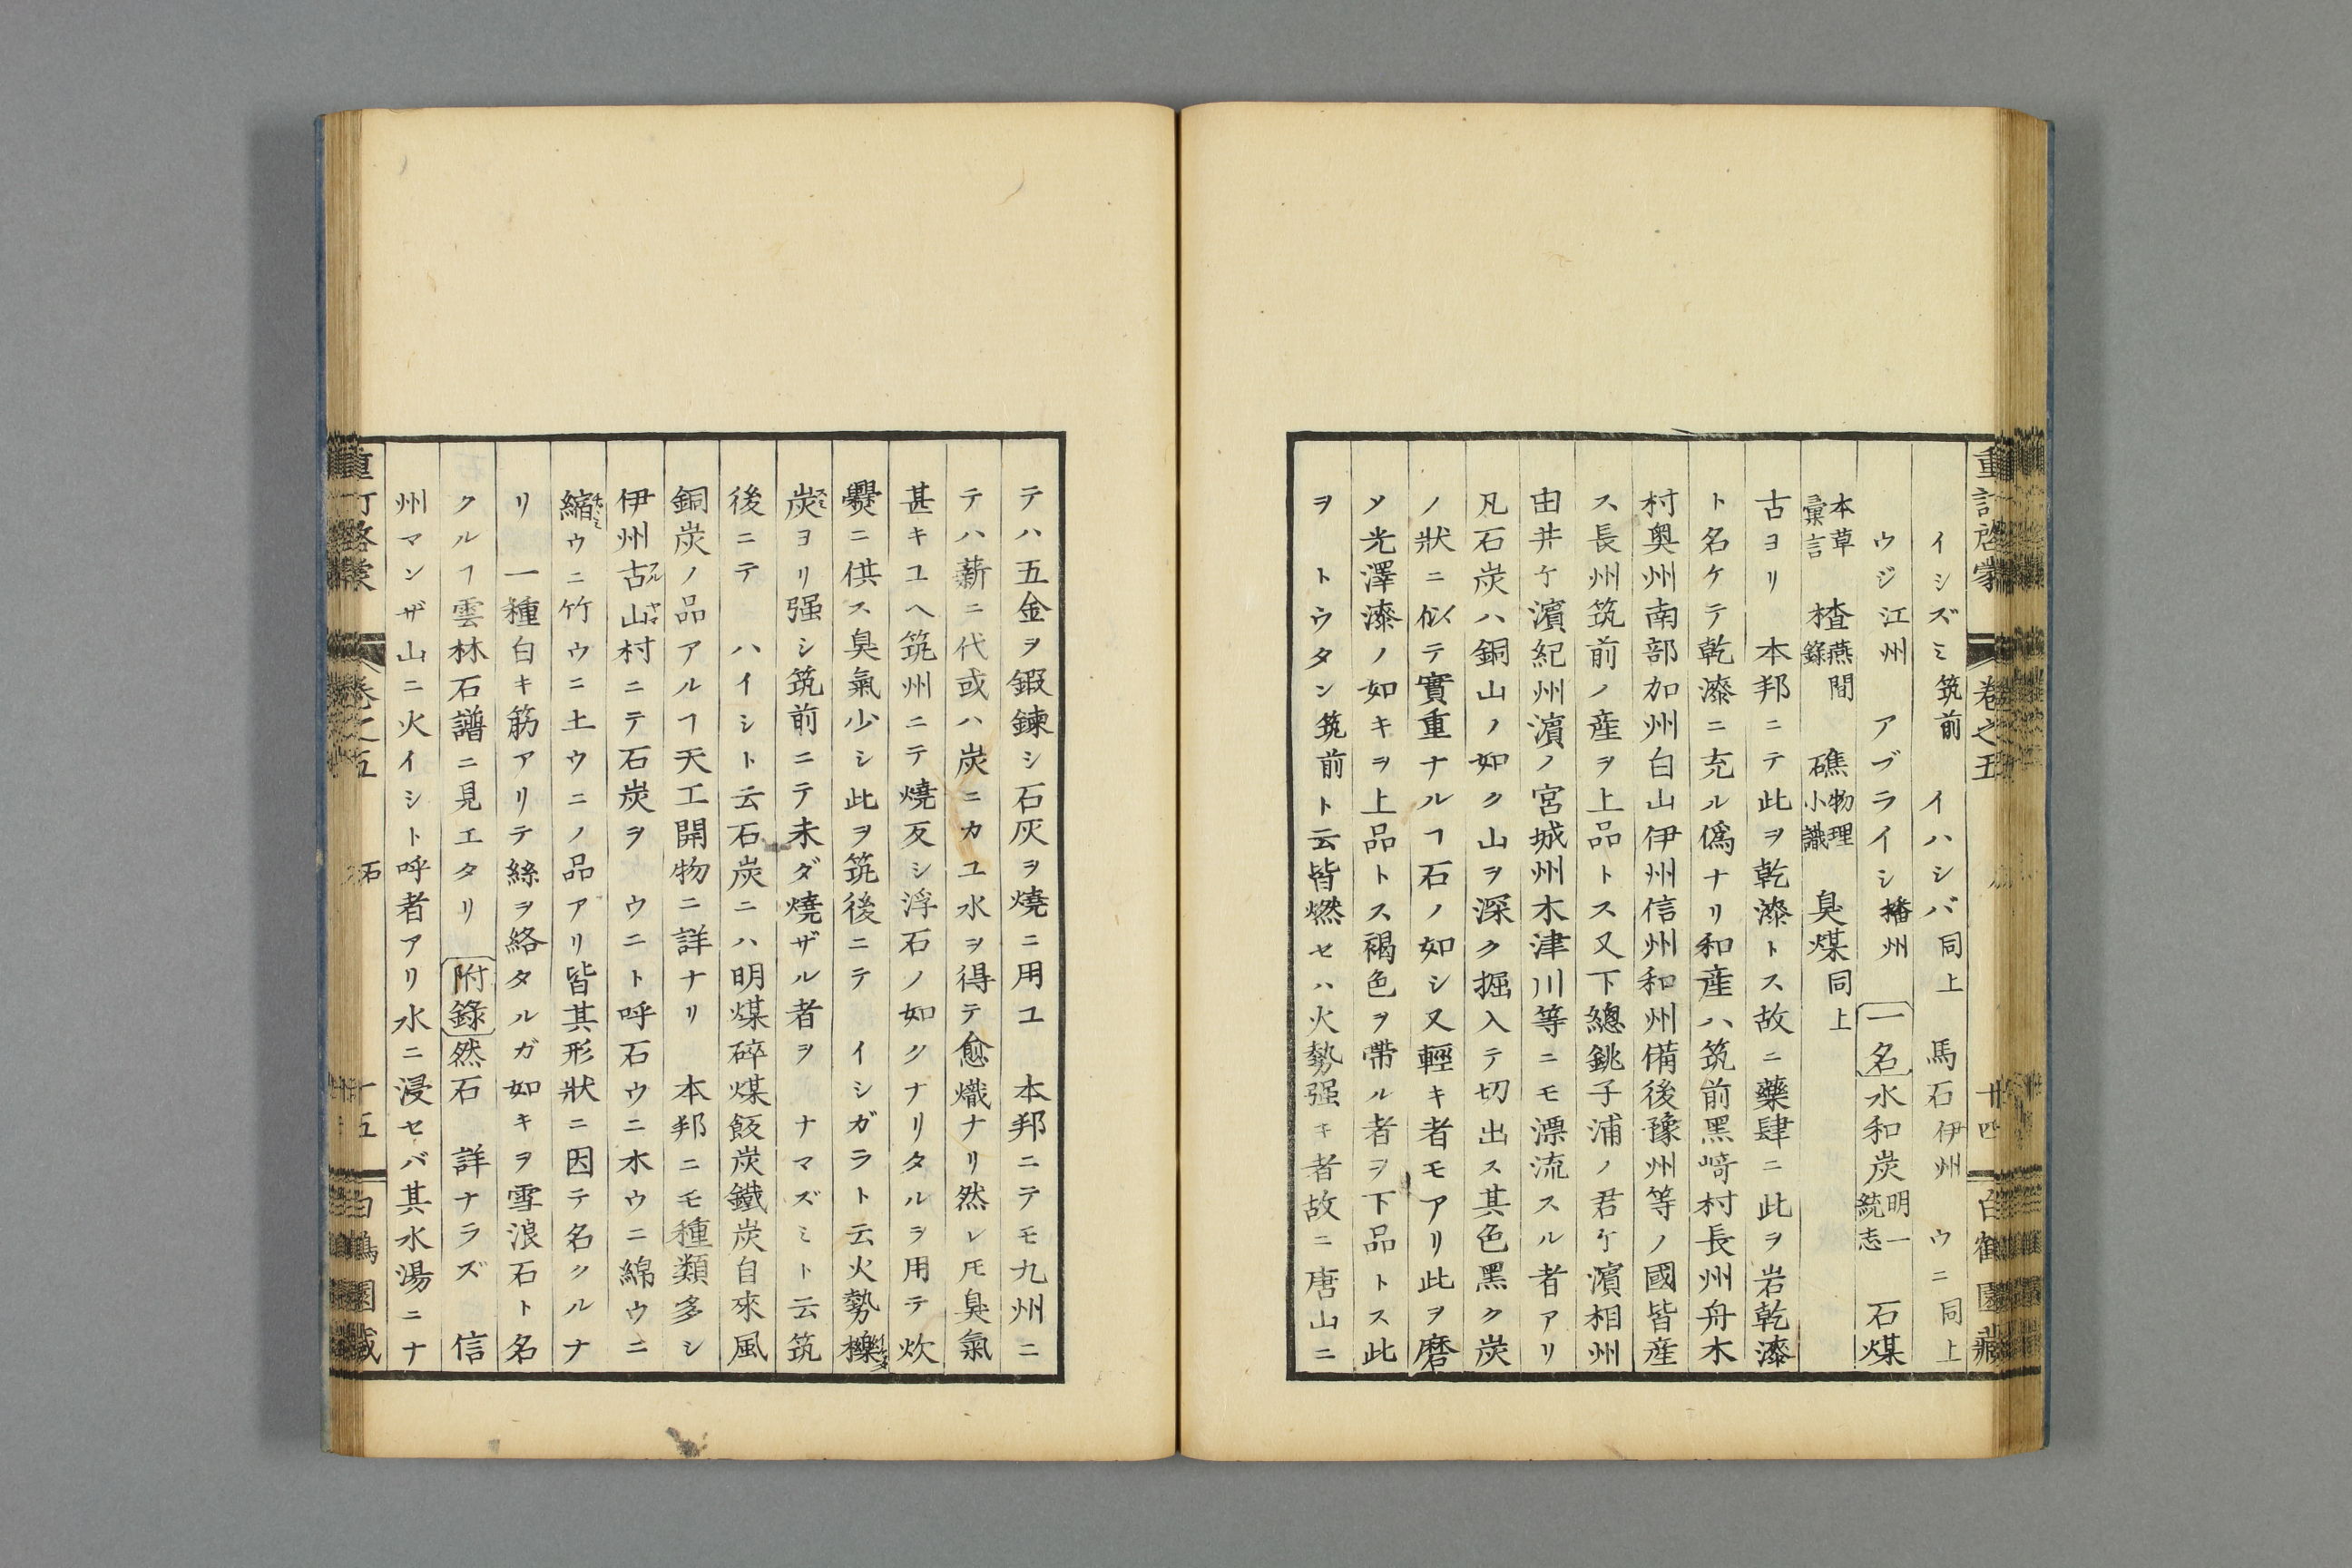 重訂啓蒙 卷之五 廿四 白鶴園藏
イシズミ筑前 イハシバ同上 馬石伊州 ウニ同上
ウジ江州 アブライシ播州 一名 水和炭明一統志 石煤
本草彙言 楂燕間錄 礁物理小識 臭煤同上
古ヨリ 本邦ニテ此ヲ乾漆トス故ニ藥肆ニ此ヲ岩乾漆
ト名ケテ乾漆ニ充ル僞ナリ和産ハ筑前黑﨑村長州舟木
村奥州南部加州白山伊州信州和州備後豫州等ノ國皆産
ス長州筑前ノ産ヲ上品トス又下總銚子浦ノ君ケ濱相州
由井ケ濱紀州濵ノ宮城州木津川等ニモ漂流スル者アリ
凡石炭ハ銅山ノ如ク山ヲ深ク掘入テ切出ス其色黑ク炭
ノ狀ニ似テ實重ナルヿ石ノ如シ又輕キ者モアリ此ヲ磨
メ光澤漆ノ如キヲ上品トス褐色ヲ帶ル者ヲ下品トス此
ヲ トウタン筑前ト云皆燃セハ火勢强キ者故ニ唐山ニ
テハ五金ヲ鍜鍊シ石灰ヲ燒ニ用ユ 本邦ニテモ九州ニ
テハ薪ニ代或ハ炭ニカユ水ヲ得テ愈熾ナリ然レ𪜈臭氣
甚キユヘ筑州ニテ燒反シ浮石ノ如クナリタルヲ用テ炊
爨ニ供ス臭氣少シ此ヲ筑後ニテ イシガラト云火勢櫟
炭ヨリ强シ筑前ニテ未ダ燒ザル者ヲ ナマズミト云筑
後ニテ ハイシト云石炭ニハ明煤碎煤飯炭鐵炭自來風
銅炭ノ品アルヿ天工開物ニ詳ナリ 本邦ニモ種類多シ
伊州古山村ニテ石炭ヲ ウニト呼石ウニ木ウニ綿ウニ
縮ウニ竹ウニ土ウニノ品アリ皆其形狀ニ因テ名クルナ
リ 一種白キ筋アリテ絲ヲ絡タルガ如キヲ雪浪石ト名
クルヿ雲林石譜ニ見エタリ 附錄 然石 詳ナラズ 信
州マンザ山ニ火イシト呼者アリ水ニ浸セバ其水湯ニナ
重訂啓蒙 卷之五 石 廿五 白鶴園藏